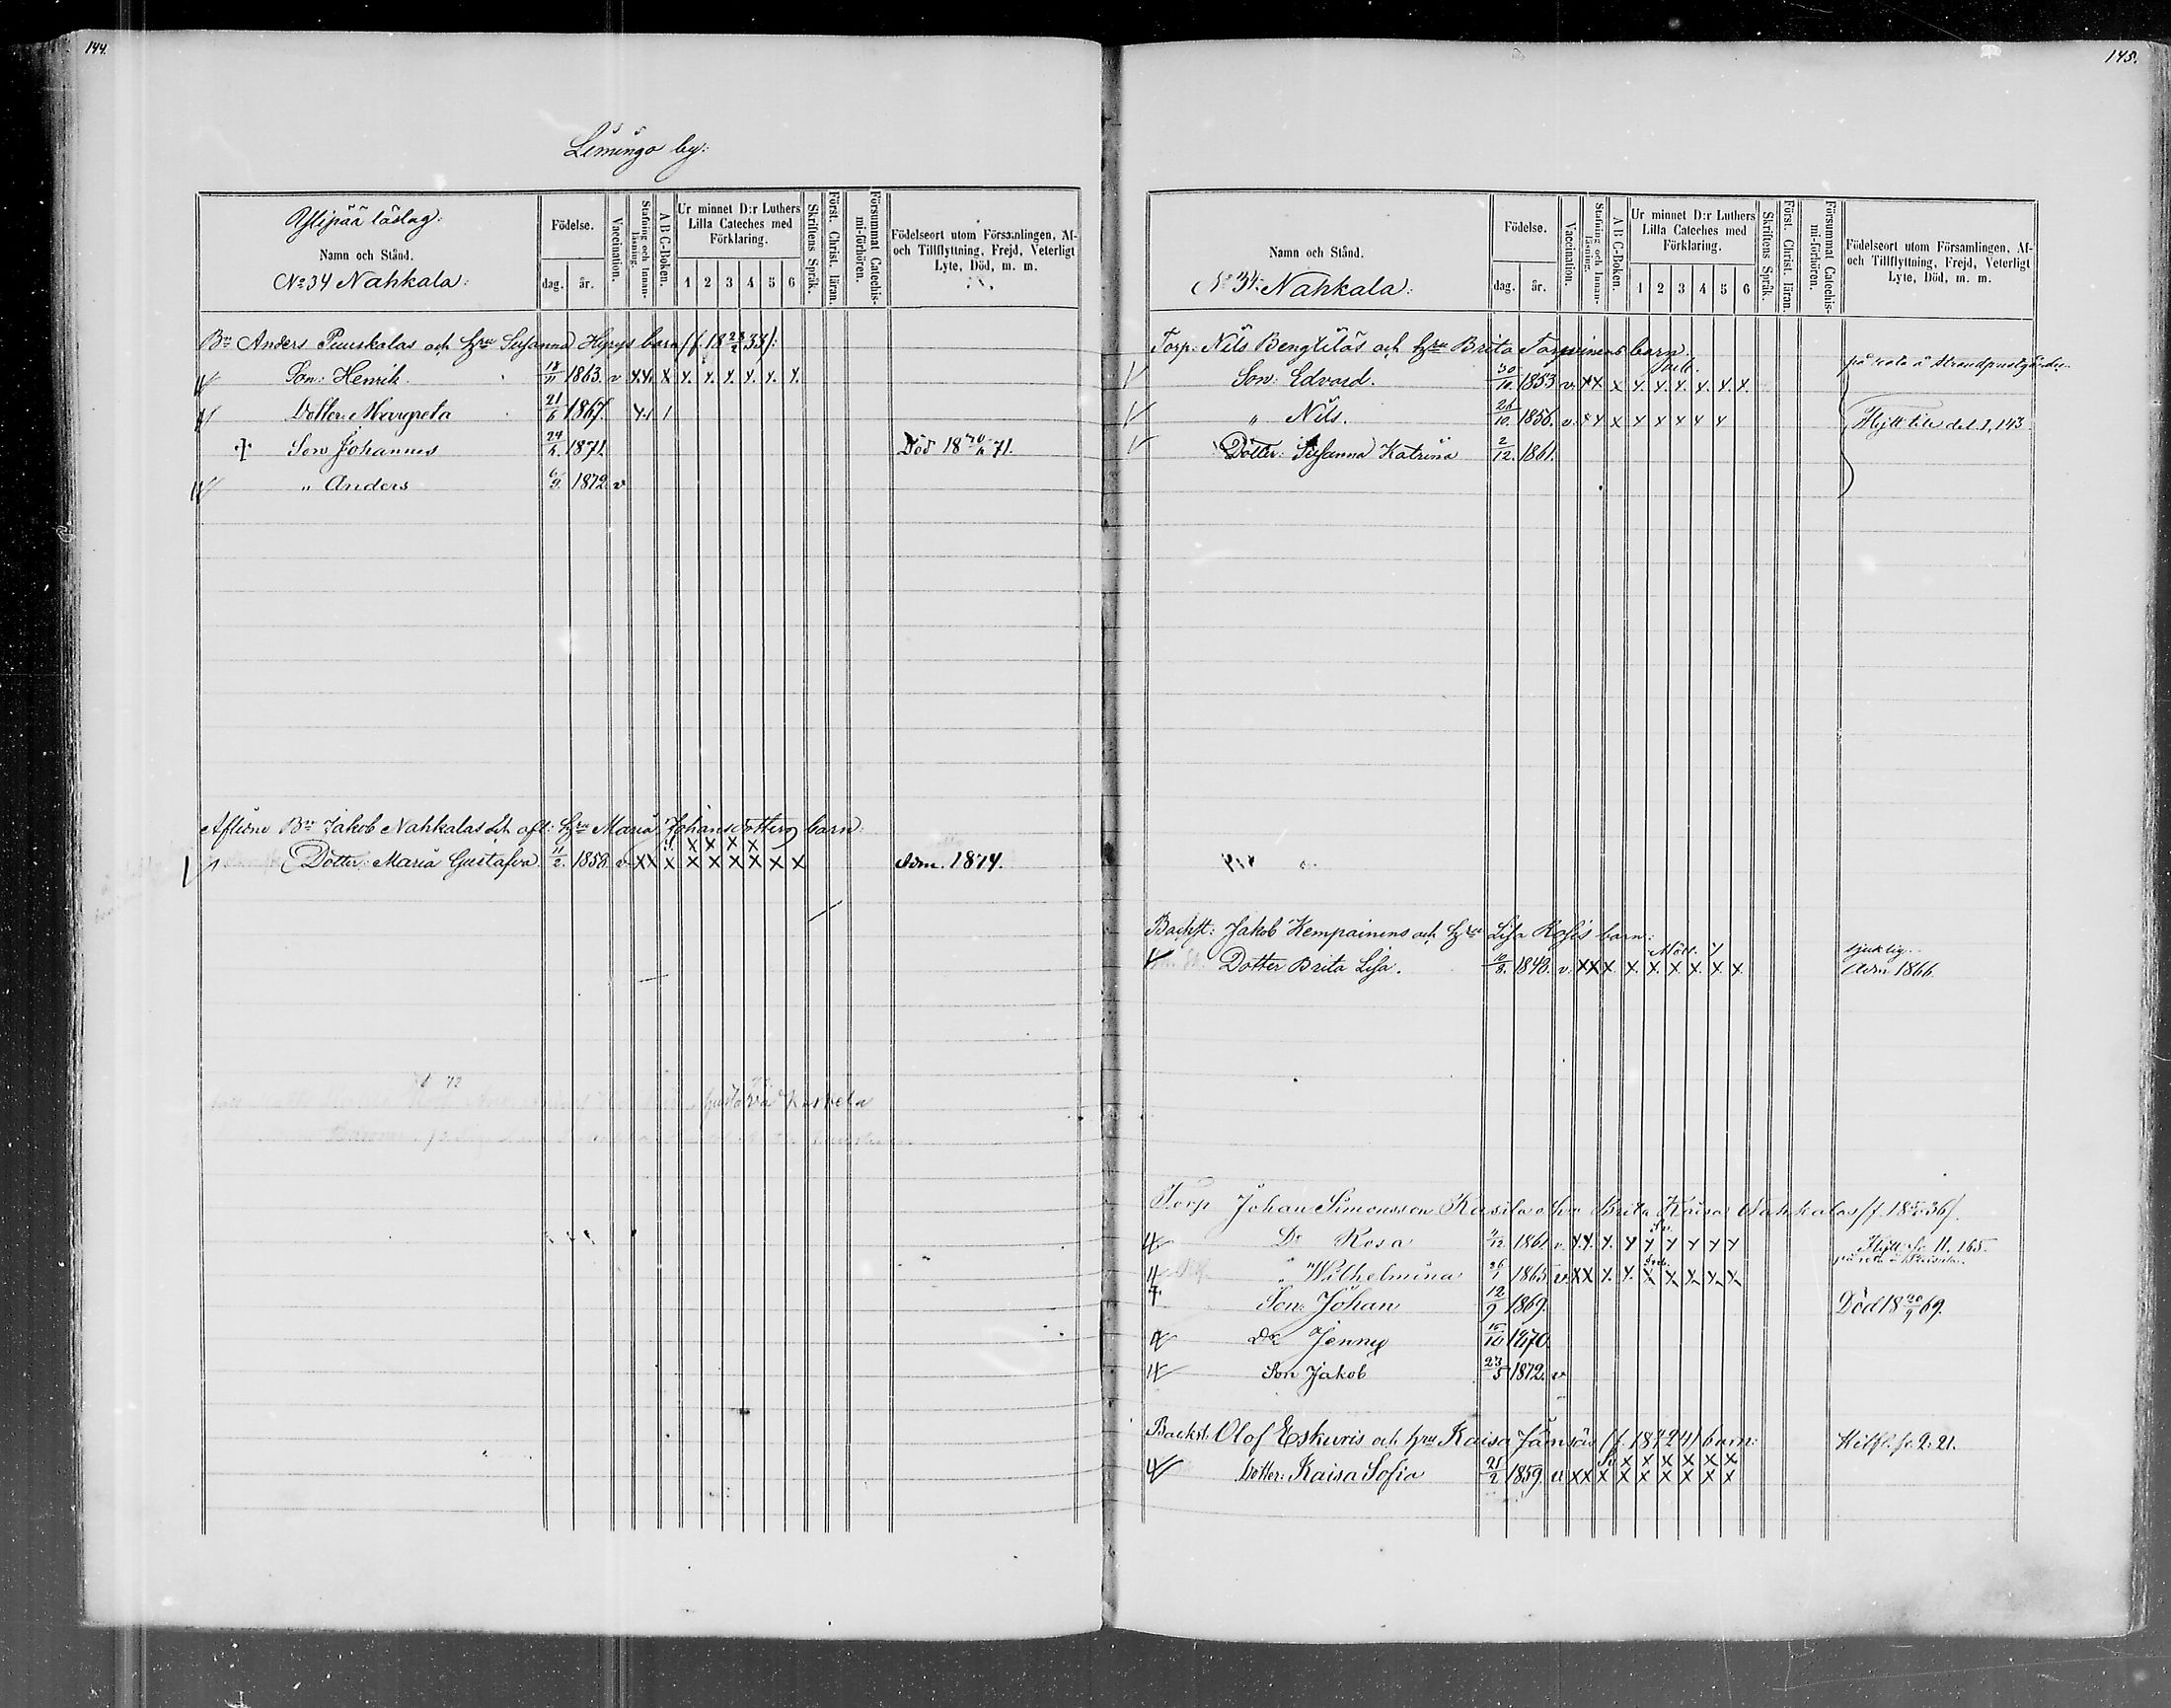 144.
Limingo by:
Ylipää läslag:
Namn och Stånd.
No 34 Nahkala:
Födelse.
dag. år.
Vaccination.
Stafning och Innan-läsning.
A B C-Boken.
Ur minnet D:r Luthers
Lilla Cateches med
Förklaring.
1 2 3 4 5 6
Skriftens Språk.
Först. Christ. läran.
Försummat Catechis-mi-förhören.
Födelseort utom Församlingen, Af-
och Tillflyttning, Frejd, Veterligt
Lyte, Död, m. m.
Bn Anders Puuskalas och hru Susanna Hyrys barn (f. 18 23/2 33):
Son: Henrik. 18/11 1863. v x.x. x x. x. x. x. x. x.
Dotter: Margreta 21/6 1867.
Son Johannes 24/4 1871. Död 18 71.
" Anders 6/9 1872. v
Aflidne Bn Jakob Nahkalas och afl: hru Maria Johansdotters barn:
x x x x
Dotter: Maria Gustafva 11/2. 1858. v x x x x x x x x x Adm. 1874.
Gustafva
145.
Namn och Stånd.
No 34: Nahkala:
Födelse.
dag. år.
Vaccination.
Stafning och Innan-läsning.
A B C-Boken.
Ur minnet D:r Luthers
Lilla Cateches med
Förklaring.
1 2 3 4 5 6
Skriftens Språk.
Först. Christ. läran.
Försummat Catechis-mi-förhören.
Födelseort utom Församlingen, Af-
och Tillflyttning, Frejd, Veterligt
Lyte, Död, m. m.
Torp: Nils Bengtiläs och hru Brita Torvinens barn.
Son: Edvard. 30/10. 1853 v. x x x x. x. x. x. x. x.
" Nils. 1856. v. x x x x x x x x Flytt till del. 1, 143
Dotter: Susanna Katrina 2/12. 1861.
Backst: Jakob Kempainens och hru Lisa Rosis barn:
sjuklig
Dotter Brita Lisa. 10/8. 1848. v. x x x x. x. x. x. x. x Adm 1866.
Torp Johan Simonsson Brita Kaisa Nahkalas
Dr Rosa 1861. v. x.x. x. x x x x x x Flytt fr. II. 165.
" Wilhelmina 26/1 1865 v. x x x. x. x x x x x
Son: Johan 12/9 1869. Död 18 20/9 69.
Dr Jenny 15/10 1870.
Son Jakob 23/5 1872. v
Backst. Olof Eskuris och hru Kaisa Jämsäs barn:
x x x x x x
Dotter: Kaisa Sofia 21/2 1859. v x x x x x x x x x